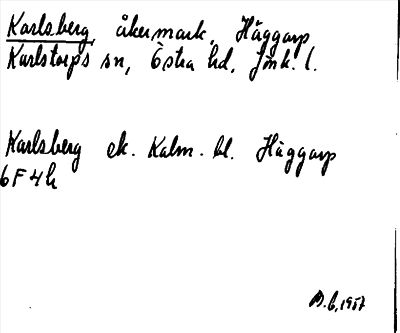 Karlsberg, åkermark, Häggarp
Karlstorps sn, Östra hd, Jmk. l.
Karlsberg ek. Kalm. bl. Häggarp
6F4h
1957